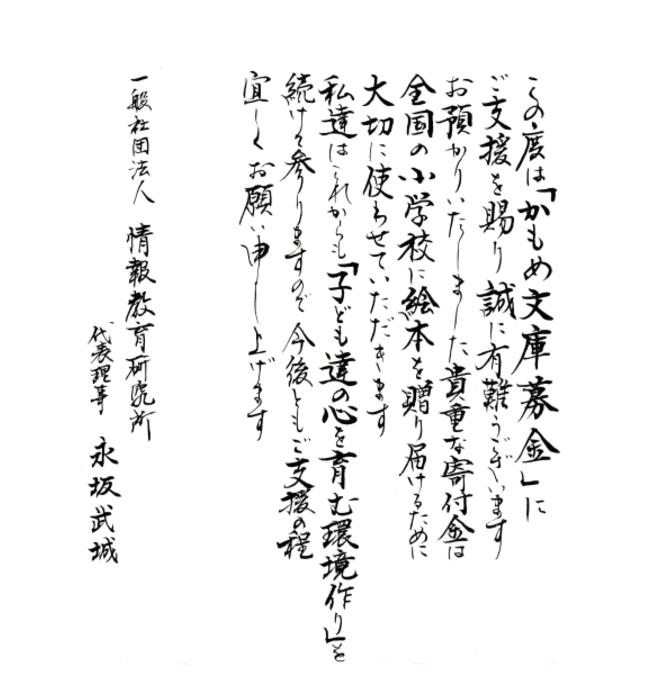 この度は「かもめ文庫募金」に
ご支援を賜り誠に有難うございます
お預かりいたしました貴重な寄付金は
全国の小学校に絵本を贈り届けるために
大切に使わせていただきます
私達はこれからも「子ども達の心を育む環境作り」を
続けて参りますので今後ともご支援の程
宜しくお願い申し上げます
一般社団法人 情報教育研究所
代表理事 永坂武城